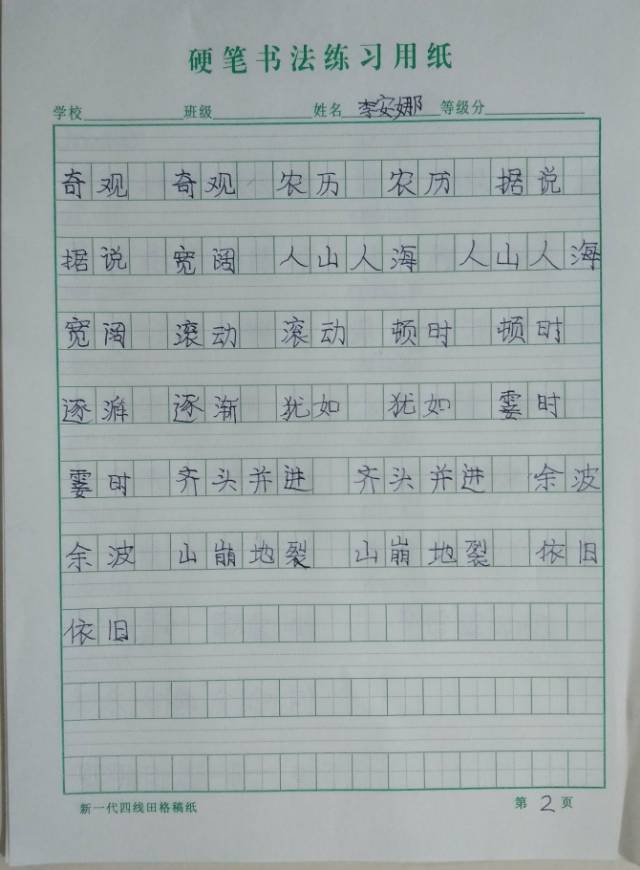 硬笔书法练习用纸
学校 班级 姓名 李安娜 等级分
奇观 奇观 农历 农历 据说
据说 宽阔 人山人海 人山人海
宽阔 滚动 滚动 顿时 顿时
逐渐 逐渐 犹如 犹如 霎时
霎时 齐头并进 齐头并进 余波
余波 山崩地裂 山崩地裂 依旧
依旧
新一代四线田格稿纸 第 2 页